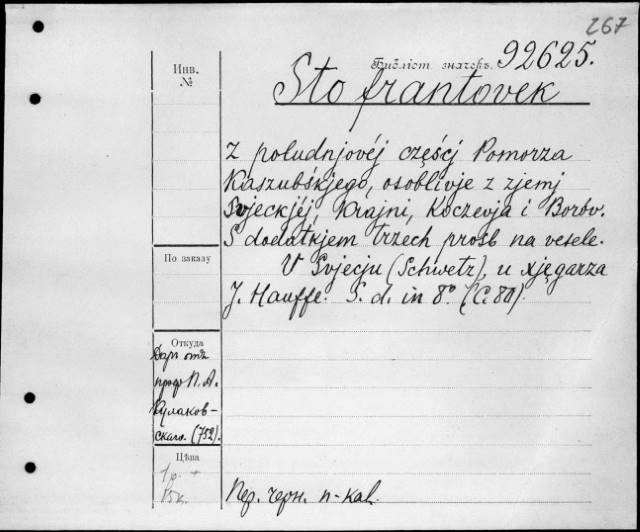 267
Инв.
№
Библіот. значокъ. 92625.
Sto frantovek
z południovéj częścj Pomorza
Kaszubśkjego, osoblivje z zjemj
Svjeckjéj, Krajni, Koczevja i Borov.
S dodatkjem trzech prosb na vesele.
V Svjecju (Schwetz), u xjęgarza
J. Hauffe. S. d. in 8° (C. 80).
По заказу
Откуда
Даръ отъ
проф. П. А.
Кулаков-
скаго. (752).
Цѣна
1 р.
15 к.
Пер. черн. п-kal.